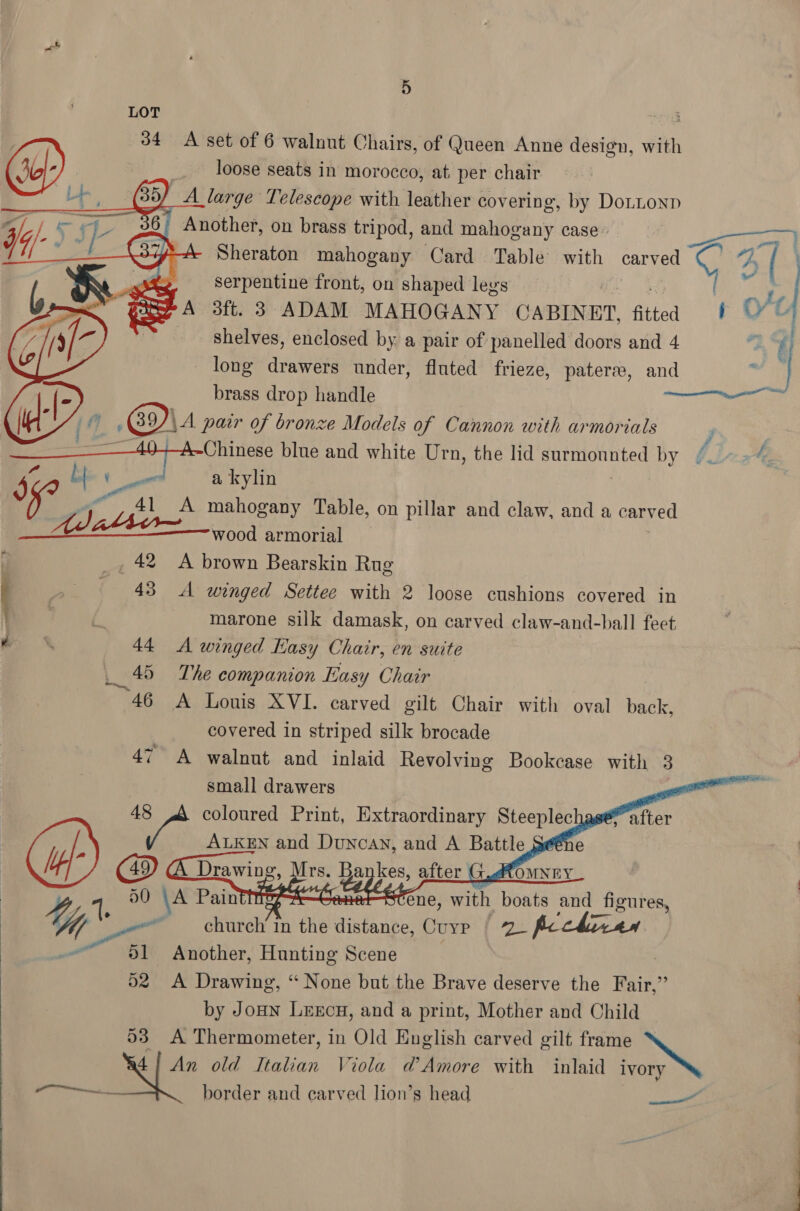 5
LOT
34 A set of 6 walnut Chairs, of Queen Anne design, with
loose seats in morocco, at per chair
35 A large Telescope with leather covering, by DOLLOND
36 Another, on brass tripod, and mahogany case
37 A Sheraton mahogany Card Table with carved
serpentine front, on shaped legs
A 3ft. 3 ADAM MAHOGANY CABINET, fitted
shelves, enclosed by a pair of panelled doors and 4
long drawers under, fluted frieze, pateræ, and
brass drop handle
39 A pair of bronze Models of Cannon with armorials
40 A Chinese blue and white Urn, the lid surmounted by
a kylin
41 A mahogany Table, on pillar and claw, and a carved
wood armorial
42 A brown Bearskin Rug
43 A winged Settee with 2 loose cushions covered in
marone silk damask, on carved claw-and-ball feet
44 A winged Easy Chair, en suite
45 The companion Easy Chair
46 A Louis XVI. carved gilt Chair with oval back,
covered in striped silk brocade
47 A walnut and inlaid Revolving Bookcase with 3
small drawers
48 A coloured Print, Extraordinary Steeplechase, after
ALKEN and DUNCAN, and A Battle Scene
49 A Drawing, Mrs. Bankes, after G. ROMNEY
50 A Painting, A Canal Scene, with boats and figures,
church in the distance, CUYP 2
51 Another, Hunting Scene
52 A Drawing, “None but the Brave deserve the Fair,”
by JOHN LEECH, and a print, Mother and Child
53 A Thermometer, in Old English carved gilt frame
54 An old Italian Viola d'Amore with inlaid ivory
border and carved lion's head